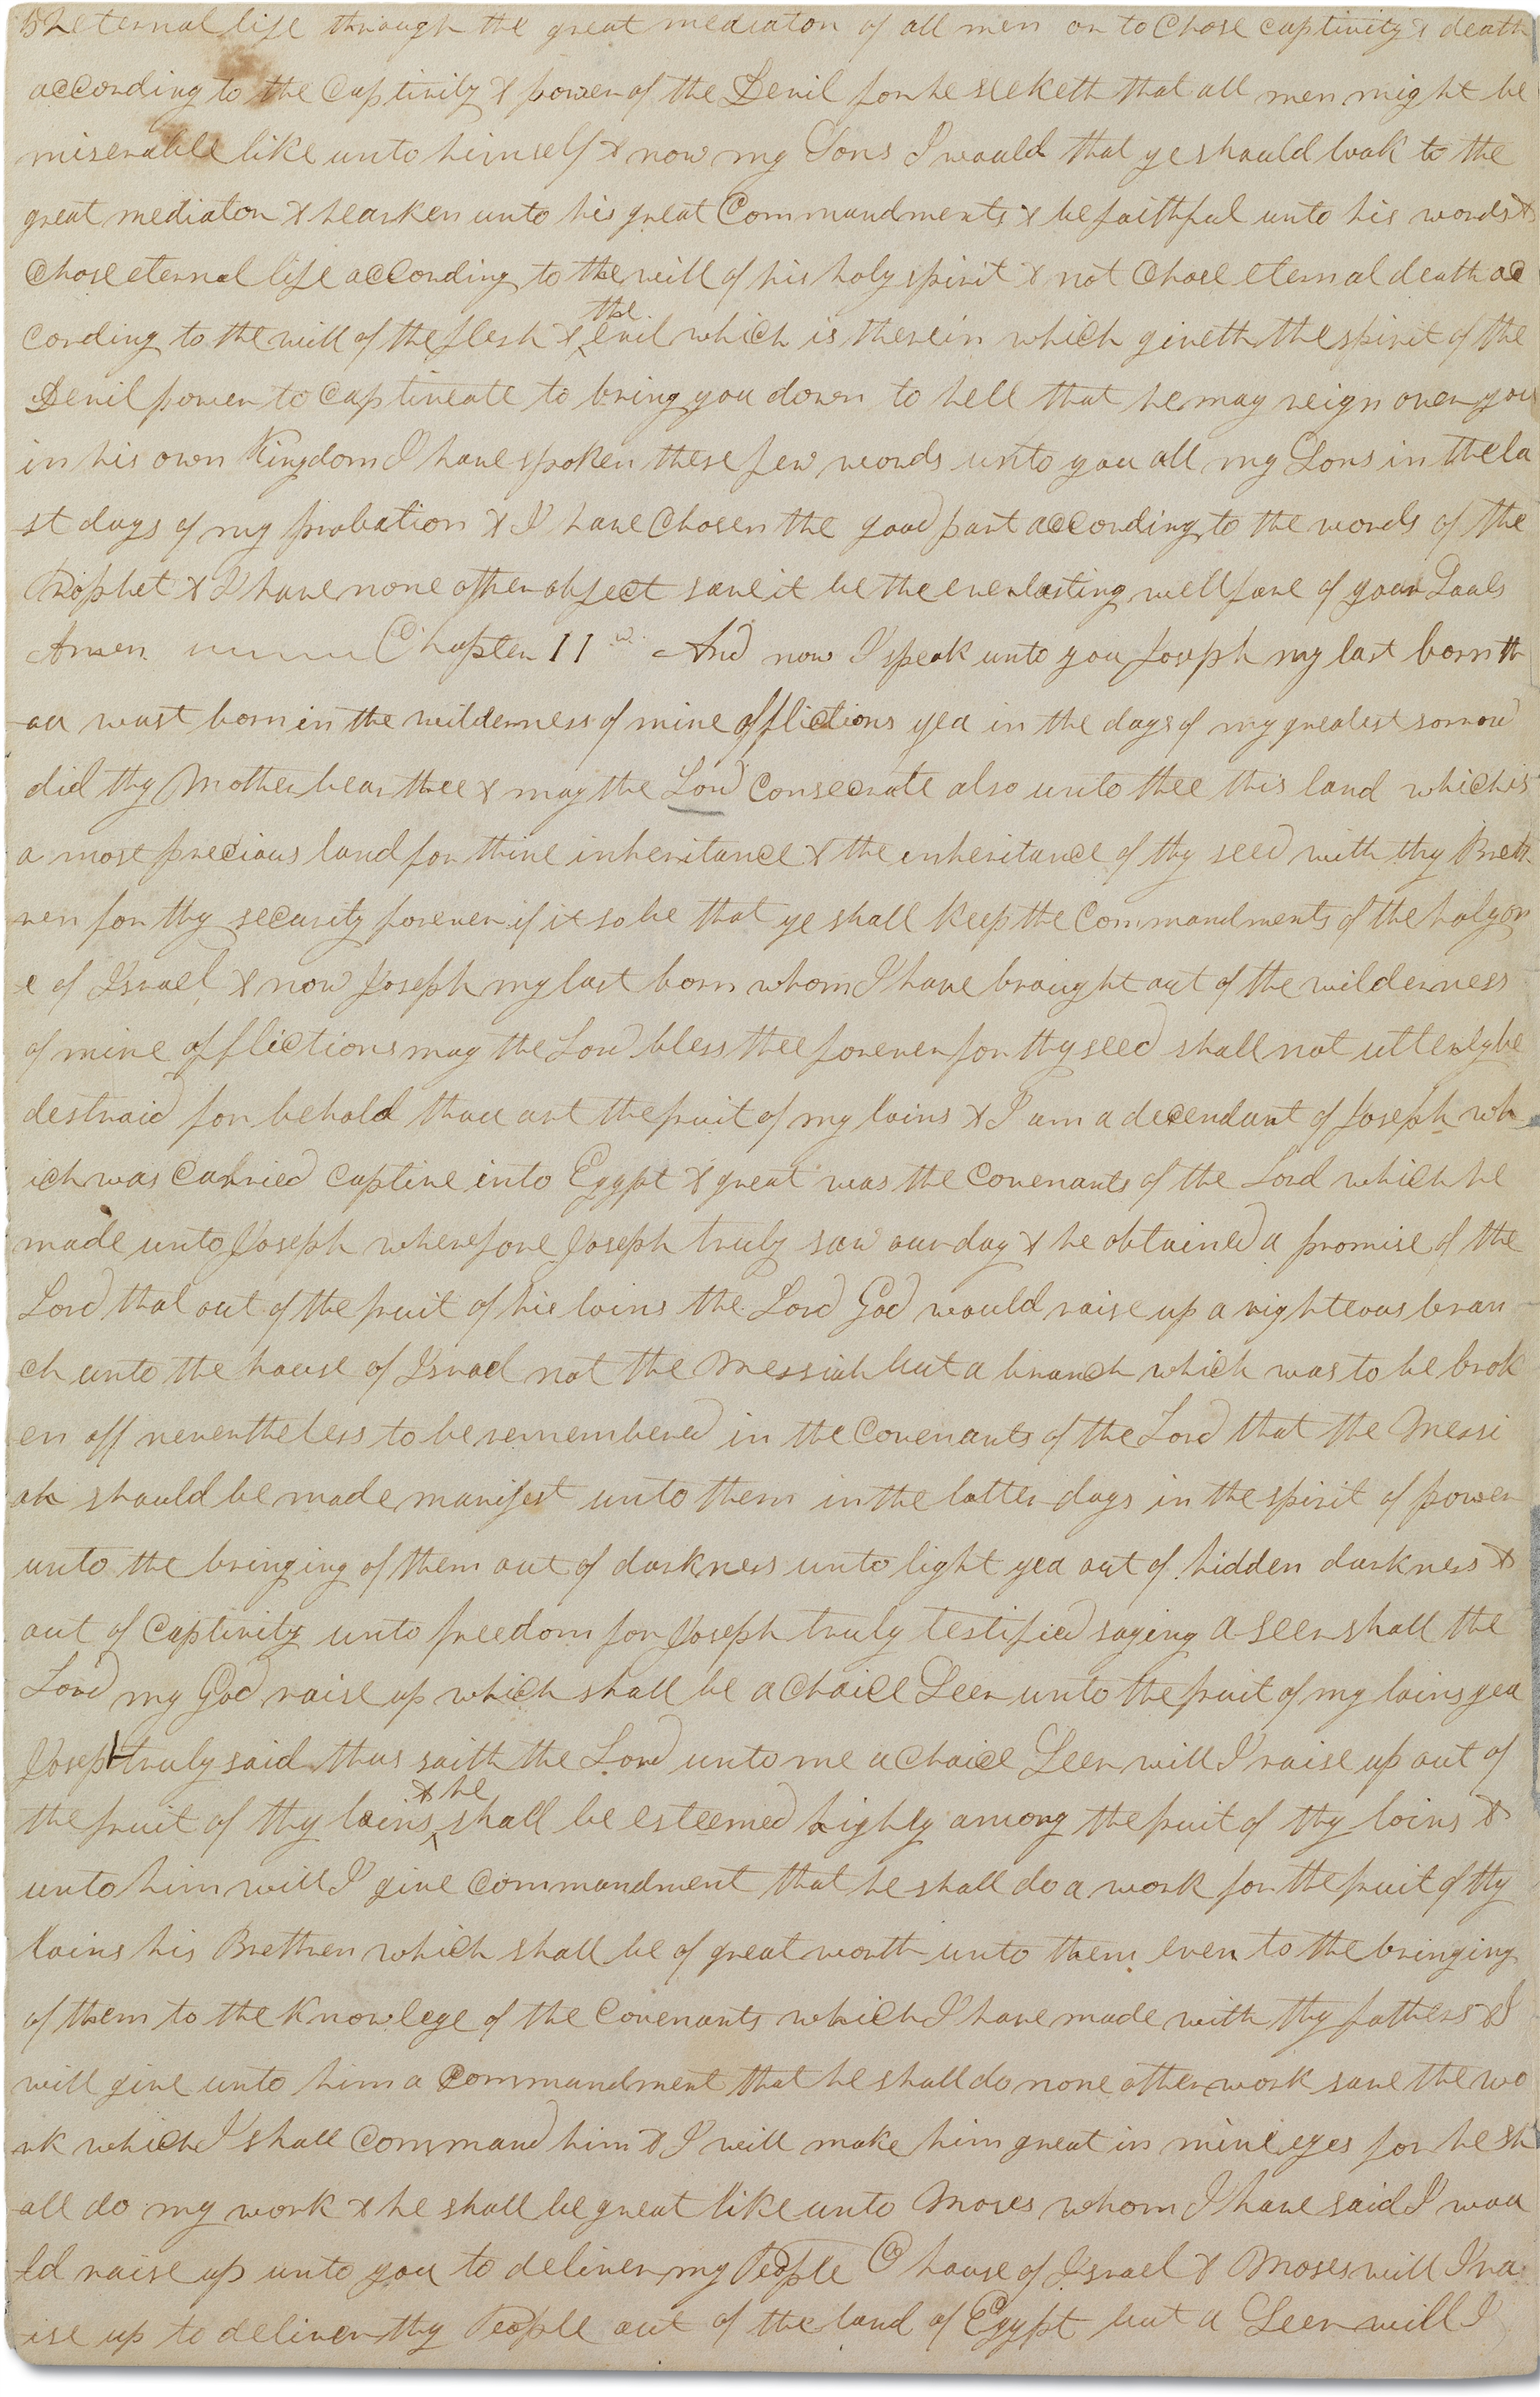 & eternal life through the great mediator of all men or to chose captivity & death
according to the captivity & power of the Devil for he seeketh that all men might be
miserable like unto himself & now my Sons I would that ye should look to the
great mediator & hearken unto his great commandments & be faithful unto his words &
chose eternal life according to the will of his holy spirit & not chose eternal death ac
cording to the will of the flesh & the evil which is therein which giveth the spirit of the
Devil power to captiveate to bring you down to hell that he may reign over you
in his own Kingdom I have spoken these few words unto you all my Sons in the la
st days of my probation & I have chosen the good part according to the words of the
Prophet & I have none other object save it be the everlasting wellfare of your Souls
Amen Chapter II And now I speak unto you Joseph my last born th
ou wast born in the wilderness of mine afflictions yea in the days of my greatest sorrow
did thy Mother bear thee & may the Lord consecrate also unto thee this land which is
a most precious land for thine inheritance & the inheritance of thy seed with thy Breth
ren for thy security forever if it so be that ye shall keep the commandments of the holy on
e of Israel & now Joseph my last born whom I have brought out of the wilderness
of mine afflictions may the Lord bless thee forever for thy seed shall not utterly be
destroid for behold thou art the fruit of my loins & I am a decendant of Joseph wh
ich was carried captive into Egypt & great was the covenants of the Lord which he
made unto Joseph wherefore Joseph truly saw our day & he obtained a promise of the
Lord that out of the fruit of his loins the Lord God would raise up a righteous bran
ch unto the house of Israel not the Messiah but a branch which was to be brok
en off nevertheless to be remembered in the covenants of the Lord that the Messi
ah should be made manifest unto them in the latter days in the spirit of power
unto the bringing of them out of darkness unto light yea out of hidden darkness &
out of captivity unto freedom for Joseph truly testified saying a seer shall the
Lord my God raise up which shall be a choice Seer unto the fruit of my loins yea
Joseph truly said thus saith the Lord unto me a choice Seer will I raise up out of
the fruit of thy loins & he shall be esteemed highly among the fruit of thy loins &
unto him will I give commandment that he shall do a work for the fruit of thy
loins his Brethren which shall be of great worth unto them even to the bringing
of them to the knowlege of the covenants which I have made with thy fathers & I
will give unto him a commandment that he shall do none other work save the wo
rk which I shall command him & I will make him great in mine eyes for he sh
all do my work & he shall be great like unto Moses whom I have said I wou
ld raise up unto you to deliver my People O house of Israel & Moses will I ra
ise up to deliver thy People out of the land of Egypt but a Seer will I